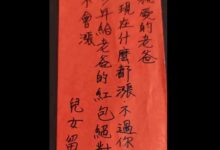 親愛的老爸
現在什麼都漲不過你
今年給老爸的紅包絕對
不會漲
兒女留